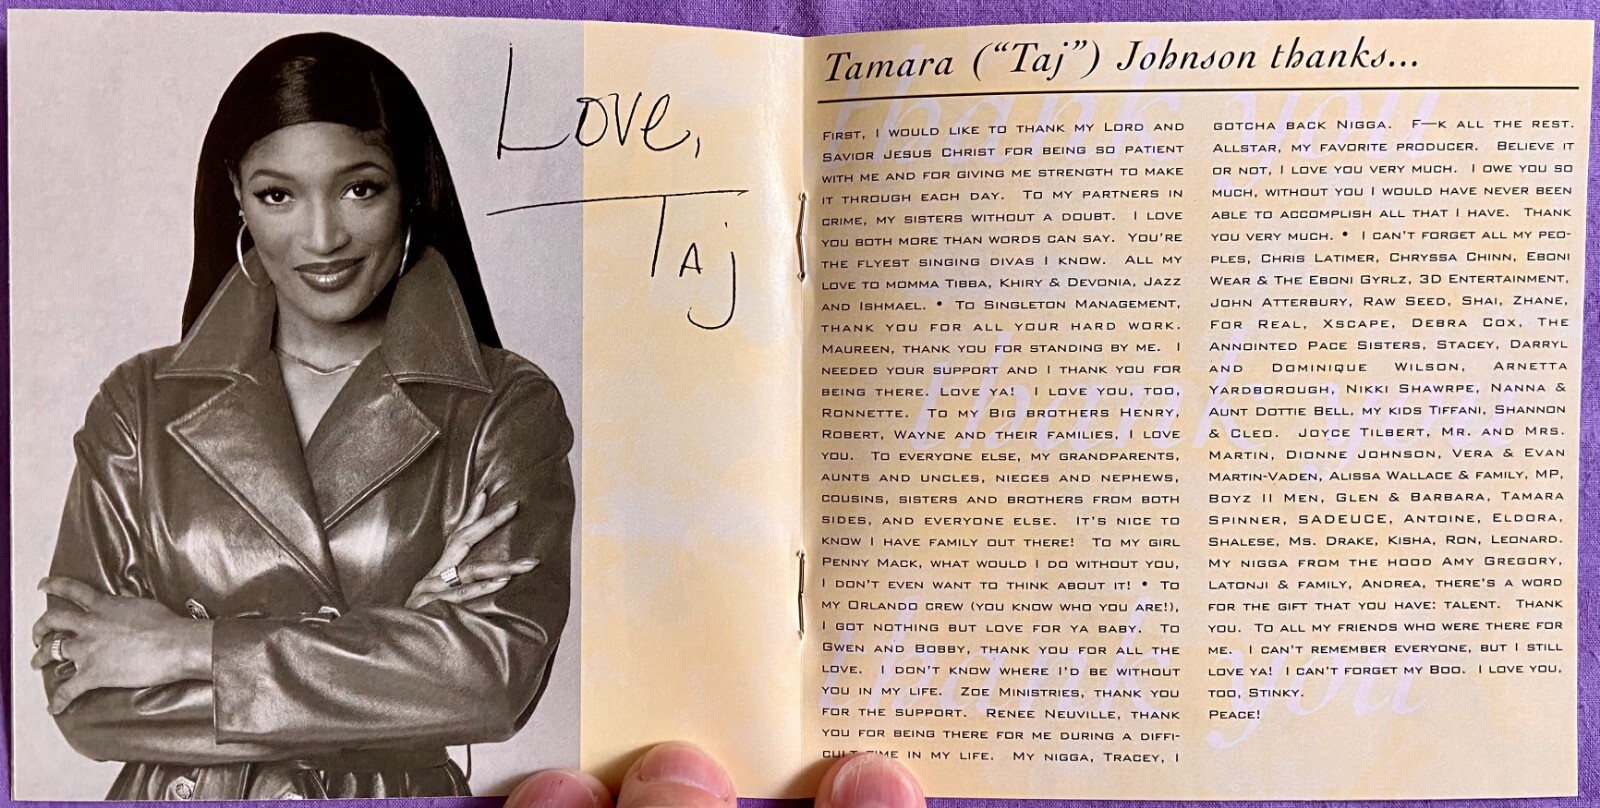 Love,
Taj
Tamara ("Taj") Johnson thanks...
First, I would like to thank my Lord and
Savior Jesus Christ for being so patient
with me and for giving me strength to make
it through each day. To my partners in
crime, my sisters without a doubt. I love
you both more than words can say. You're
the flyest singing divas I know. All my
love to Momma Tibba, Khiry & Devonia, Jazz
and Ishmael. • To Singleton Management,
thank you for all your hard work.
Maureen, thank you for standing by me. I
needed your support and I thank you for
being there. Love ya! I love you, too,
Ronnette. To my Big brothers Henry,
Robert, Wayne and their families, I love
you. To everyone else, my grandparents,
aunts and uncles, nieces and nephews,
cousins, sisters and brothers from both
sides, and everyone else. It's nice to
know I have family out there! To my girl
Penny Mack, what would I do without you,
I don't even want to think about it! • To
my Orlando crew (you know who you are!),
I got nothing but love for ya baby. To
Gwen and Bobby, thank you for all the
love. I don't know where I'd be without
you in my life. Zoe Ministries, thank you
for the support. Renee Neuville, thank
you for being there for me during a diffi-
cult time in my life. My nigga, Tracey, I
gotcha back Nigga. F—k all the rest.
Allstar, my favorite producer. Believe it
or not, I love you very much. I owe you so
much, without you I would have never been
able to accomplish all that I have. Thank
you very much. • I can't forget all my peo-
ples, Chris Latimer, Chryssa Chinn, Eboni
Wear & The Eboni Gyrlz, 3D Entertainment,
John Atterbury, Raw Seed, Shai, Zhane,
For Real, Xscape, Debra Cox, The
Annointed Pace Sisters, Stacey, Darryl
and Dominique Wilson, Arnetta
Yardborough, Nikki Shawrpe, Nanna &
Aunt Dottie Bell, my kids Tiffani, Shannon
& Cleo. Joyce Tilbert, Mr. and Mrs.
Martin, Dionne Johnson, Vera & Evan
Martin-Vaden, Alissa Wallace & family, MP,
Boyz II Men, Glen & Barbara, Tamara
Spinner, SADEUCE, Antoine, Eldora,
Shalese, Ms. Drake, Kisha, Ron, Leonard.
My nigga from the hood Amy Gregory,
Latonji & family, Andrea, there's a word
for the gift that you have: talent. Thank
you. To all my friends who were there for
me. I can't remember everyone, but I still
love ya! I can't forget my Boo. I love you,
too, Stinky.
Peace!
thank you
thank you
thank you